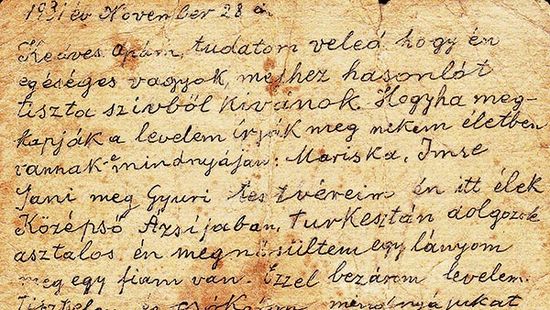 1931 év November 28 á.
Kedves Apám, tudatom veled hogy én
egéséges vagyok, mejhez hasonlót
tiszta szivből kivánok. Hogyha meg-
kapják a levelem írják meg nekem életben
vannak-e mindnyáján: Mariska, Imse
Jani meg Gyuri testvéreim én itt élek
Középső Ázsijában, Turkesztán dolgozok
asztalos én megnősültem egy lányom
meg egy fiam van. Ezzel bezárom levelem.
mindnyájukat